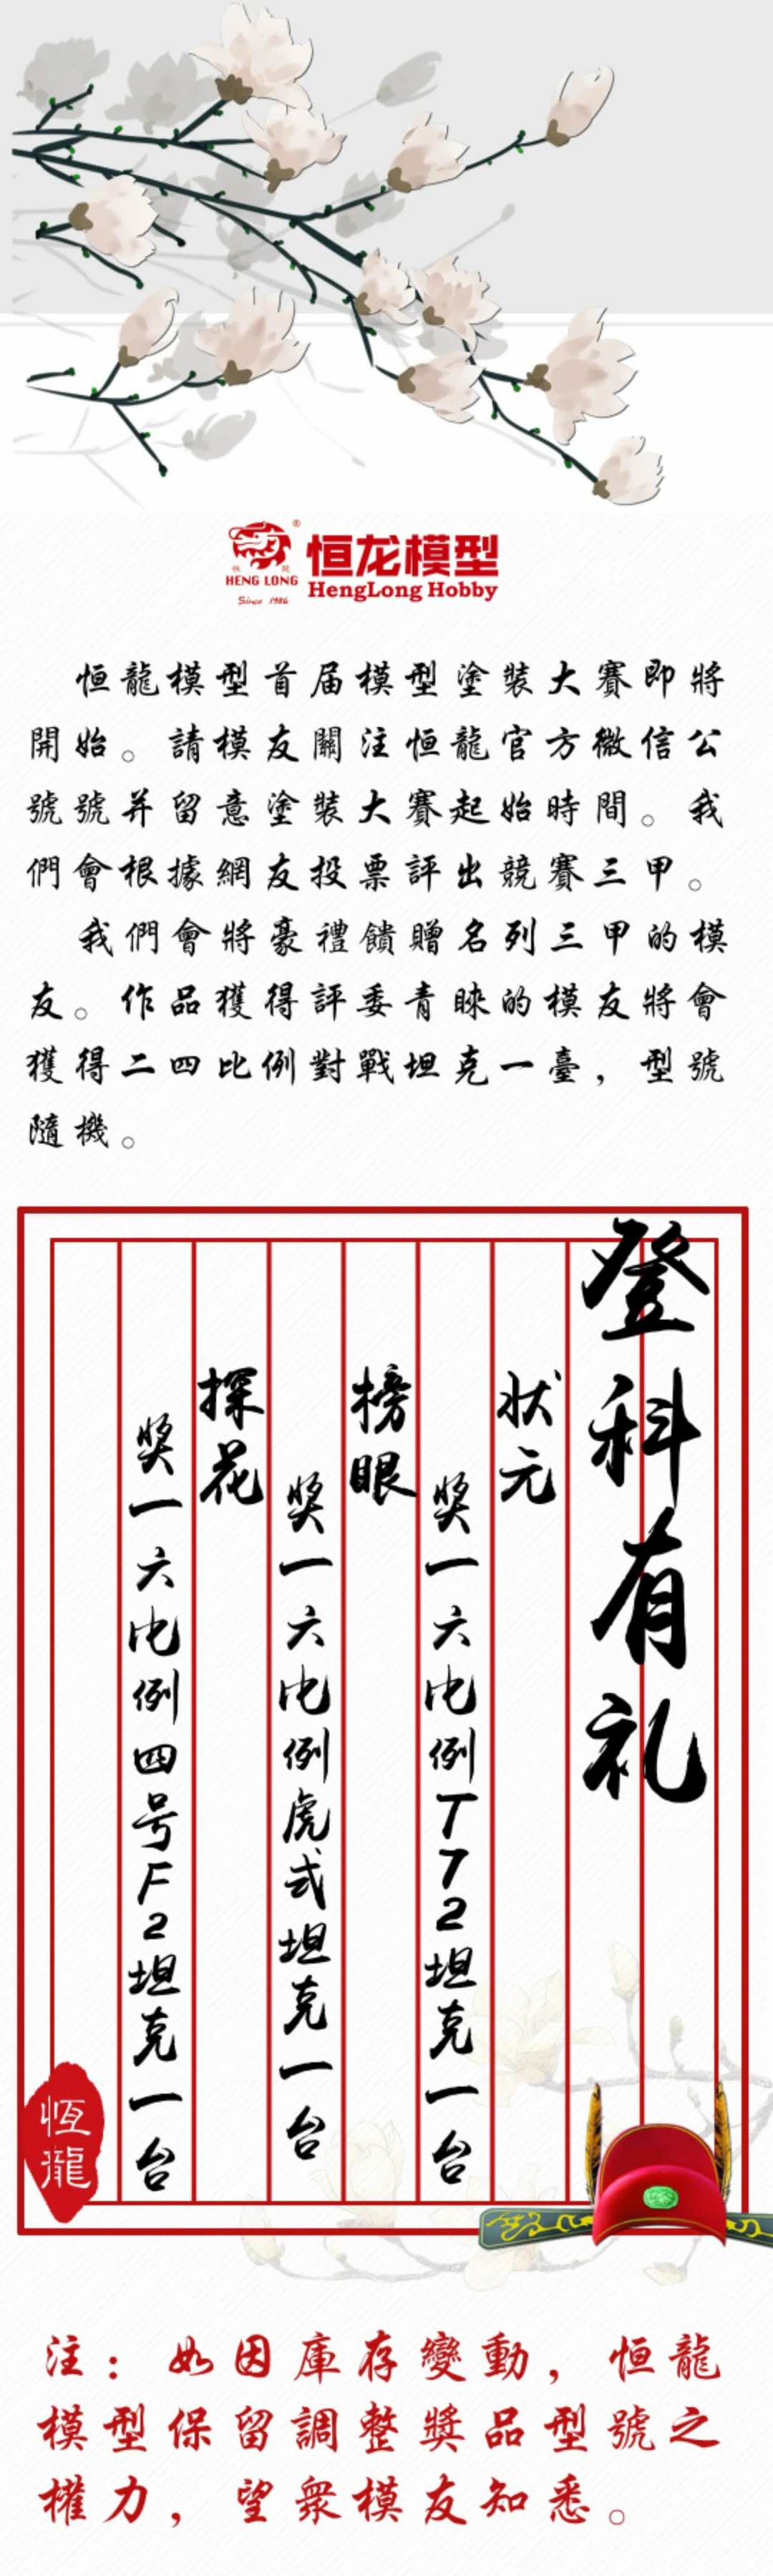 恒龙模型
HENG LONG
HengLong Hobby
Since 1986
恒龍模型首届模型塗裝大賽即將
開始。請模友關注恒龍官方微信公
號號并留意塗裝大賽起始時間。我
們會根據網友投票評出競賽三甲。
我們會將豪禮饋贈名列三甲的模
友。作品獲得評委青睞的模友將會
獲得二四比例對戰坦克一臺，型號
隨機。
登科有礼
状元
奖一六比例T72坦克一台
榜眼
奖一六比例虎式坦克一台
探花
奖一六比例四号F2坦克一台
恆龍
注：如因庫存變動，恒龍
模型保留調整獎品型號之
權力，望衆模友知悉。